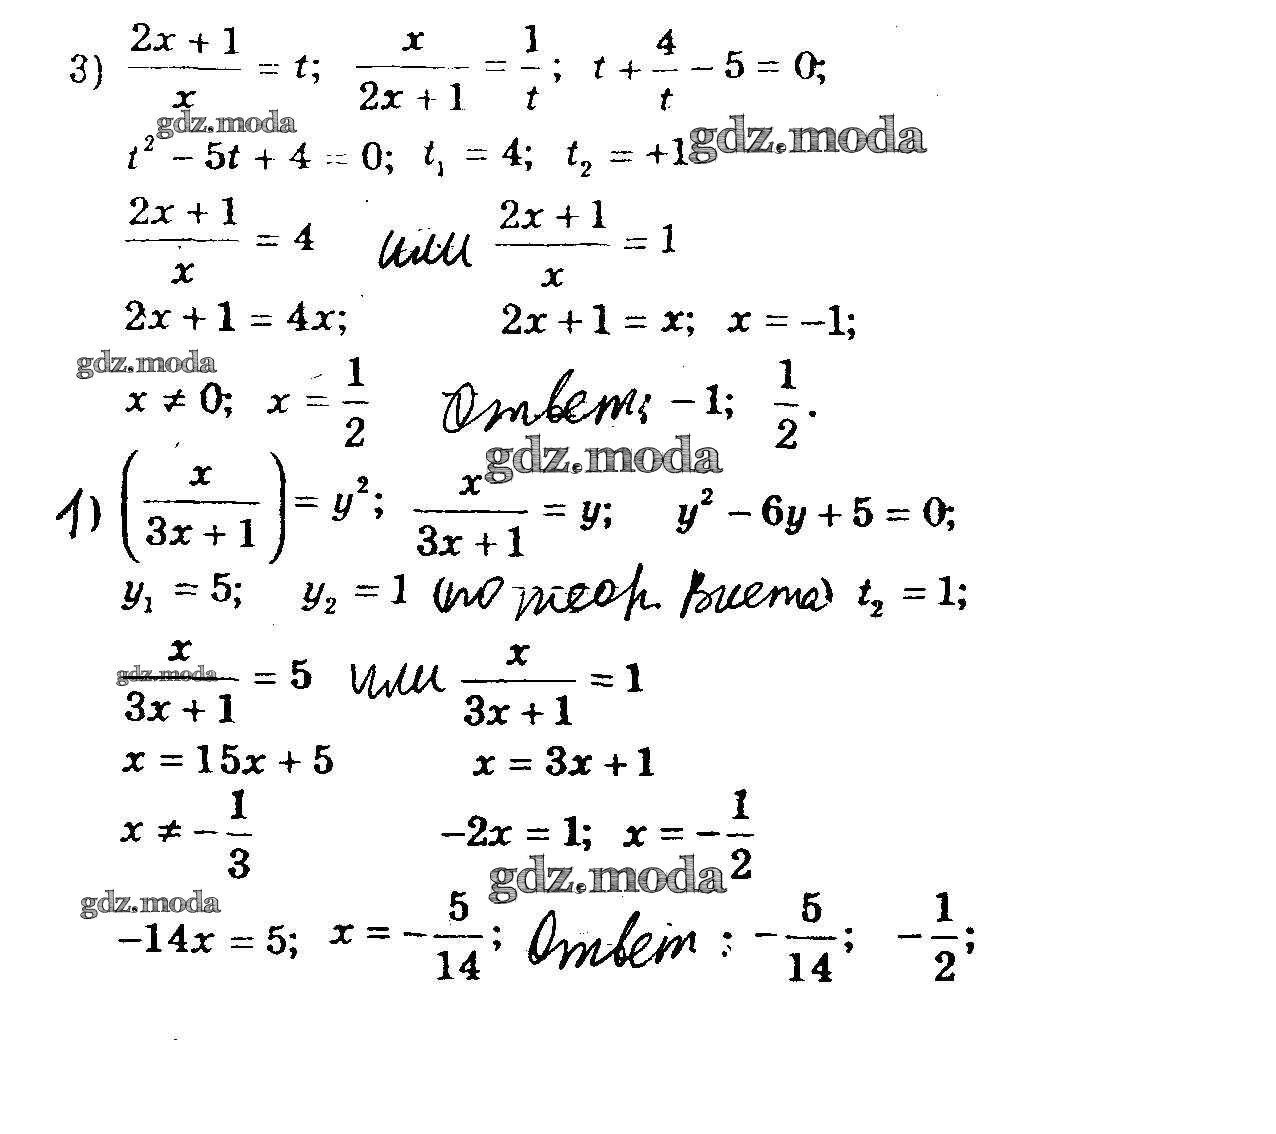 3) (2x + 1)/x = t; x/(2x + 1) = 1/t; t + 4/t − 5 = 0;
gdz.moda
gdz.moda
t² − 5t + 4 = 0; t₁ = 4; t₂ = +1
(2x + 1)/x = 4 или (2x + 1)/x = 1
2x + 1 = 4x; 2x + 1 = x; x = −1;
gdz.moda
x ≠ 0; x = 1/2 Ответ: −1; 1/2.
gdz.moda
1) (x/(3x + 1)) = y²; x/(3x + 1) = y; y² − 6y + 5 = 0;
y₁ = 5; y₂ = 1 (по теор. Виета) t₂ = 1;
gdz.moda
x/(3x + 1) = 5 или x/(3x + 1) = 1
x = 15x + 5 x = 3x + 1
x ≠ −1/3 −2x = 1; x = −1/2
gdz.moda
gdz.moda
−14x = 5; x = −5/14; Ответ : −5/14; −1/2;